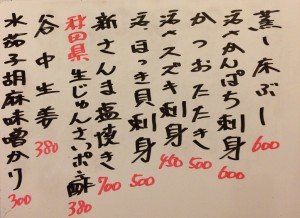 蒸し床ぶし 600
活〆かんぱち刺身 600
かつおたたき 500
活〆スズキ刺身 450
活ほっき貝刺身 500
新さんま塩焼き 700
秋田県生じゅんさいポン酢 380
谷中生姜 380
水茄子胡麻味噌かけ 300